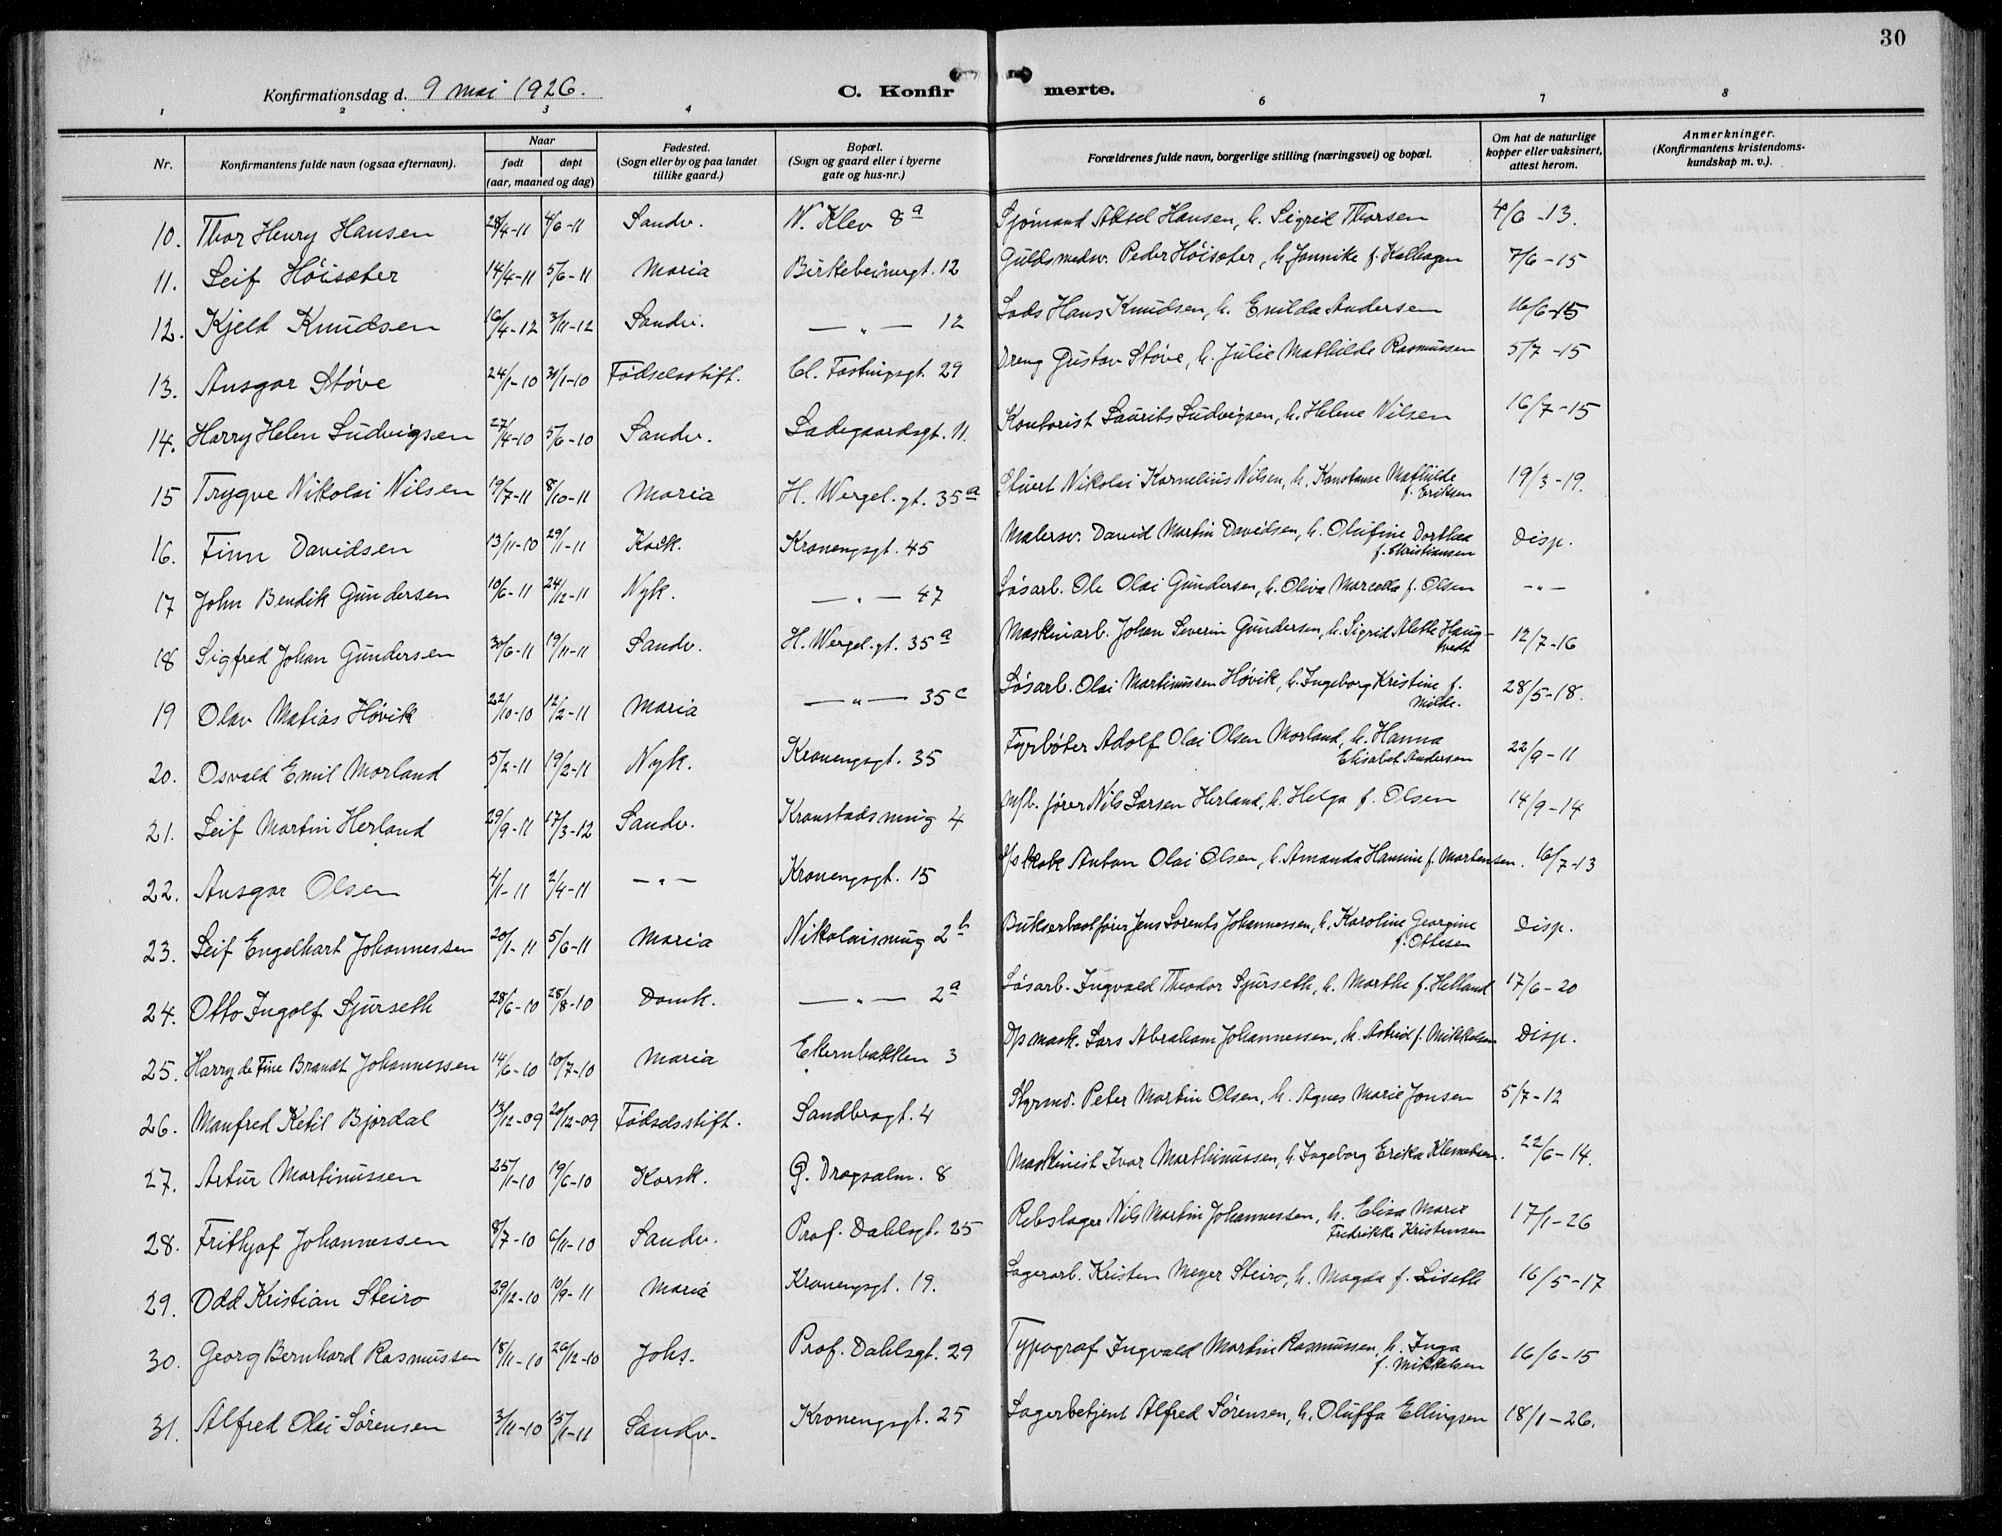 30
Konfirmationsdag d. 9 mai 1926.
C. Konfirmerte.
1 2 3 4 6 7 8
Nr. Konfirmantens fulde navn (ogsaa efternavn). Naar født døpt (aar, maaned og dag) Fødested. (Sogn eller by og paa landet tillike gaard.) Bopæl. (Sogn og gaard eller i byerne gate og hus-nr.) Forældrenes fulde navn, borgerlige stilling (næringsvei) og bopæl. Om hat de naturlige kopper eller vaksinert, attest herom. Anmerkninger. (Konfirmantens kristendomskundskap m. v.).
10. Thor Henry Hansen 28/4-11 4/6-11 Sandv. N. Klev 8a Sjømand Aksel Hansen, h. Sigrid Thorsen 4/6-13.
11. Leif Høisæter 14/4-11 5/6-11 Maria Birkebeinergt. 12 Guldsmedsv. Peder Høisæter, h. Jannike f. Kalhagen 7/6-15
12. Kjeld Knudsen 16/4-12 3/11-12 Sandv. —„— 12 Lods Hans Knudsen, h. Emilda Andersen 16/6-15
13. Ansgar Støve 24/1-10 30/1-10 Fødselsstift. Cl. Fastingsgt. 29 Dreng Gustav Støve, h. Julie Mathilde Rasmussen 5/7-15
14. Harry Helen Ludvigsen 27/4-10 5/6-10 Sandv. Ladegaardsgt. 11. Kontorist Laurits Ludvigsen, h. Helene Nilsen 16/7-15
15 Trygve Nikolai Nilsen 19/7-11 8/10-11 Maria H. Wergel.gt. 35a Stuert Nikolai Kornelius Nilsen, h. Konstanse Mathilde f. Eriksen 19/3-19.
16. Finn Davidsen 13/11-10 29/1-11 Korsk. Kronengsgt. 45 Malersv. David Martin Davidsen, h. Olufine Dorthea f. Christiansen Disp.
17 John Bendik Gundersen 10/6-11 24/12-11 Nyk. —„— 47 Løsarb. Ole Olai Gundersen, h. Oliva Marcella f. Olsen —„—
18 Sigfred Johan Gundersen 30/6-11 19/11-11 Sandv. H. Wergel.gt. 35a Maskinarb. Johan Severin Gundersen, h. Sigrid Alette Haugtvedt 12/7-16
19 Olav Matias Høvik 22/10-10 12/2-11 Maria —„— 35c Løsarb. Olai Martinussen Høvik, h. Ingeborg Kristine f. Milde. 28/5-18.
20. Osvald Emil Morland 5/2-11 19/2-11 Nyk. Kronengsgt. 35 Fyrbøter Adolf Olai Olsen Morland, h. Hanna Elisabet Andersen 22/9-11
21. Leif Martin Herland 29/9-11 17/3-12 Sandv. Kronstadsmug 4 M/b. fører Nils Larsen Herland, h. Helga f. Olsen 14/9-14
22. Ansgar Olsen 4/1-11 2/4-11 —„— Kronengsgt. 15 Anton Olai Olsen, h. Amanda Hansine f. Mortensen. 16/7-13
23. Leif Engelhart Johannessen 20/1-11 5/6-11 Maria Nikolaismug 2b Bukserbaatfører Jens Lorents Johannessen, h. Karoline Georgine f. Ottesen Disp.
24. Otto Ingolf Sjurseth 28/6-10 28/8-10 Domk. —„— 2a Løsarb. Ingvald Theodor Sjurseth, h. Marthe f. Helland 17/6-20
25. Harry de Fine Brandt Johannessen 14/6-10 10/7-10 Maria Ekernbakken 3 D/s mask. Lars Abraham Johannessen, h. Astrid f. Mikkelsen Disp.
26. Manfred Ketil Bjordal 13/12-09 20/12-09 Fødselsstift. Sandbrogt. 4 Styrmd. Peter Martin Olsen, h. Agnes Marie Jonsen 5/7-12
27. Artur Martinussen 25/1-10 19/6-10 Korsk. G. Dragsalm. 8 Maskinist Ivar Marthinussen, h. Ingeborg Erika Klemetsen. 22/6-14.
28. Frithjof Johannessen 8/7-10 6/11-10 Sandv. Prof. Dahlsgt. 25 Rebslager Nils Martin Johannessen, h. Elisa Marie Fredrikke Kristensen 17/1-26
29. Odd Kristian Steiro 29/12-10 10/9-11 Maria Kronengsgt. 19. Lagerarb. Kristen Meyer Steiro, h. Magda f. Liseth 16/5-17
30. Georg Bernhard Rasmussen 18/11-10 26/12-10 Johs. Prof. Dahlsgt. 29 Typograf Ingvald Martin Rasmussen, h. Inga f. Mikkelsen 16/6-15
31. Alfred Olai Sørensen 3/11-10 15/1-11 Sandv. Kronengsgt. 25 Lagerbetjent Alfred Sørensen, h. Oluffa Ellingsen 18/1-26.